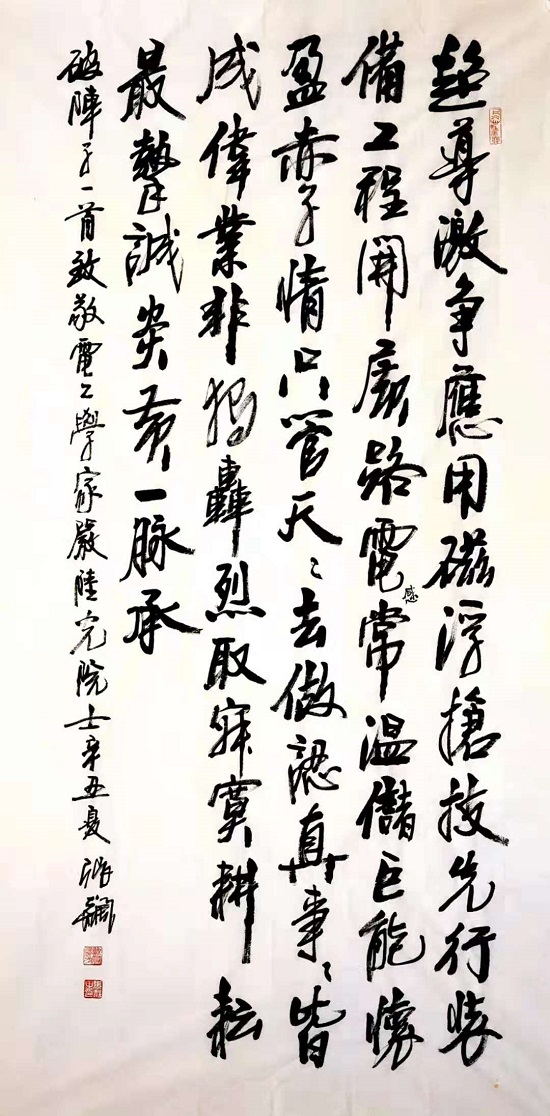 超導激争應用磁浮搶技先行裝
備工程開廣路電感常溫儲巨能懷
盈赤子情只管天〻去做認真事〻皆
成偉業非獨轟烈取寂寞耕耘
最摯誠炎黃一脈承
破陣子一首致敬電工學家嚴陸光院士辛丑夏